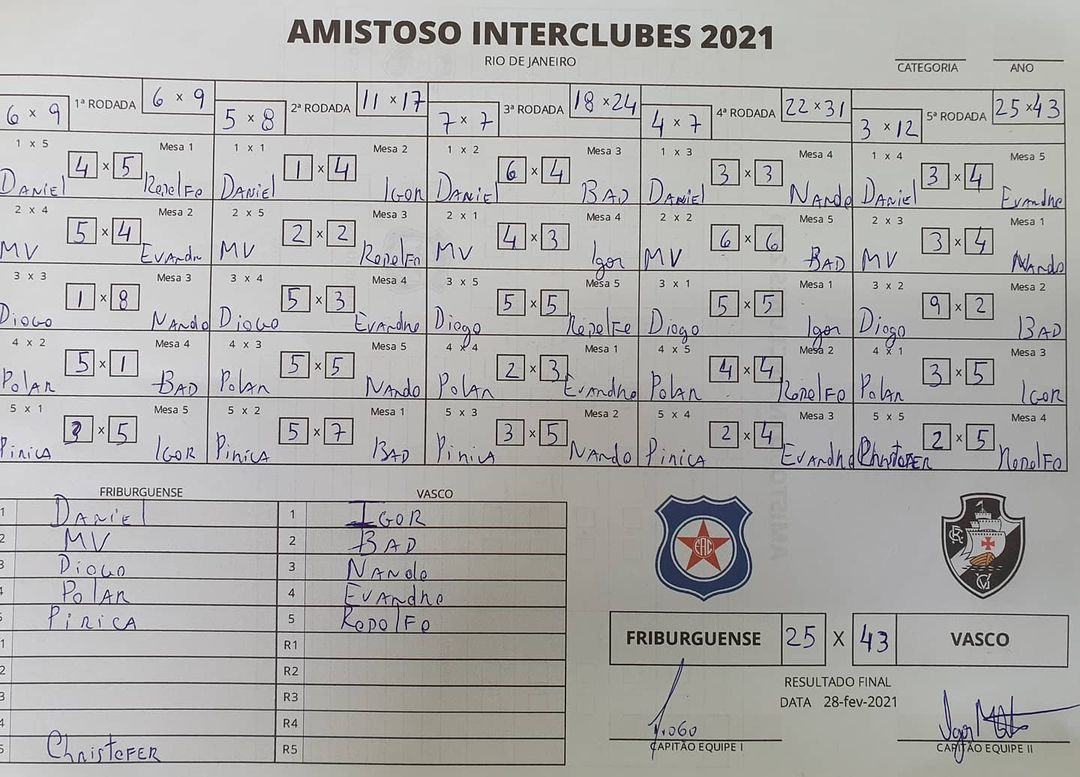 AMISTOSO INTERCLUBES 2021
RIO DE JANEIRO
CATEGORIA ANO
6 x 9 1ª RODADA 6 x 9
5 x 8 2ª RODADA 11 x 17
7 x 7 3ª RODADA 18 x 24
4 x 7 4ª RODADA 22 x 31
3 x 12 5ª RODADA 25 x 43
1 x 5 Mesa 1 1 x 1 Mesa 2 1 x 2 Mesa 3 1 x 3 Mesa 4 1 x 4 Mesa 5
DANIEL 4 x 5 RODOLFO DANIEL 1 x 4 IGOR DANIEL 6 x 4 BAD DANIEL 3 x 3 NANDO DANIEL 3 x 4 EVANDRO
2 x 4 Mesa 2 2 x 5 Mesa 3 2 x 1 Mesa 4 2 x 2 Mesa 5 2 x 3 Mesa 1
MV 5 x 4 EVANDRO MV 2 x 2 RODOLFO MV 4 x 3 Igor MV 6 x 6 BAD MV 3 x 4 NANDO
3 x 3 Mesa 3 3 x 4 Mesa 4 3 x 5 Mesa 5 3 x 1 Mesa 1 3 x 2 Mesa 2
DIOGO 1 x 8 NANDO DIOGO 5 x 3 EVANDRO DIOGO 5 x 5 RODOLFO DIOGO 5 x 5 Igor DIOGO 9 x 2 BAD
4 x 2 Mesa 4 4 x 3 Mesa 5 4 x 4 Mesa 1 4 x 5 Mesa 2 4 x 1 Mesa 3
POLAR 5 x 1 BAD POLAR 5 x 5 NANDO POLAR 2 x 3 EVANDRO POLAR 4 x 4 RODOLFO POLAR 3 x 5 IGOR
5 x 1 Mesa 5 5 x 2 Mesa 1 5 x 3 Mesa 2 5 x 4 Mesa 3 5 x 5 Mesa 4
PIRICA x 5 IGOR PIRICA 5 x 7 BAD PIRICA 3 x 5 NANDO PIRICA 2 x 4 EVANDRO CHRISTOFER 2 x 5 RODOLFO
FRIBURGUENSE VASCO
1 DANIEL 1 IGOR
2 MV 2 BAD
3 DIOGO 3 NANDO
4 POLAR 4 EVANDRO
5 PIRICA 5 RODOLFO
1 R1
2 R2
3 R3
4 R4
5 CHRISTOFER R5
FRIBURGUENSE 25 X 43 VASCO
RESULTADO FINAL
DATA 28-fev-2021
DIOGO
CAPITÃO EQUIPE I
Igor
CAPITÃO EQUIPE II